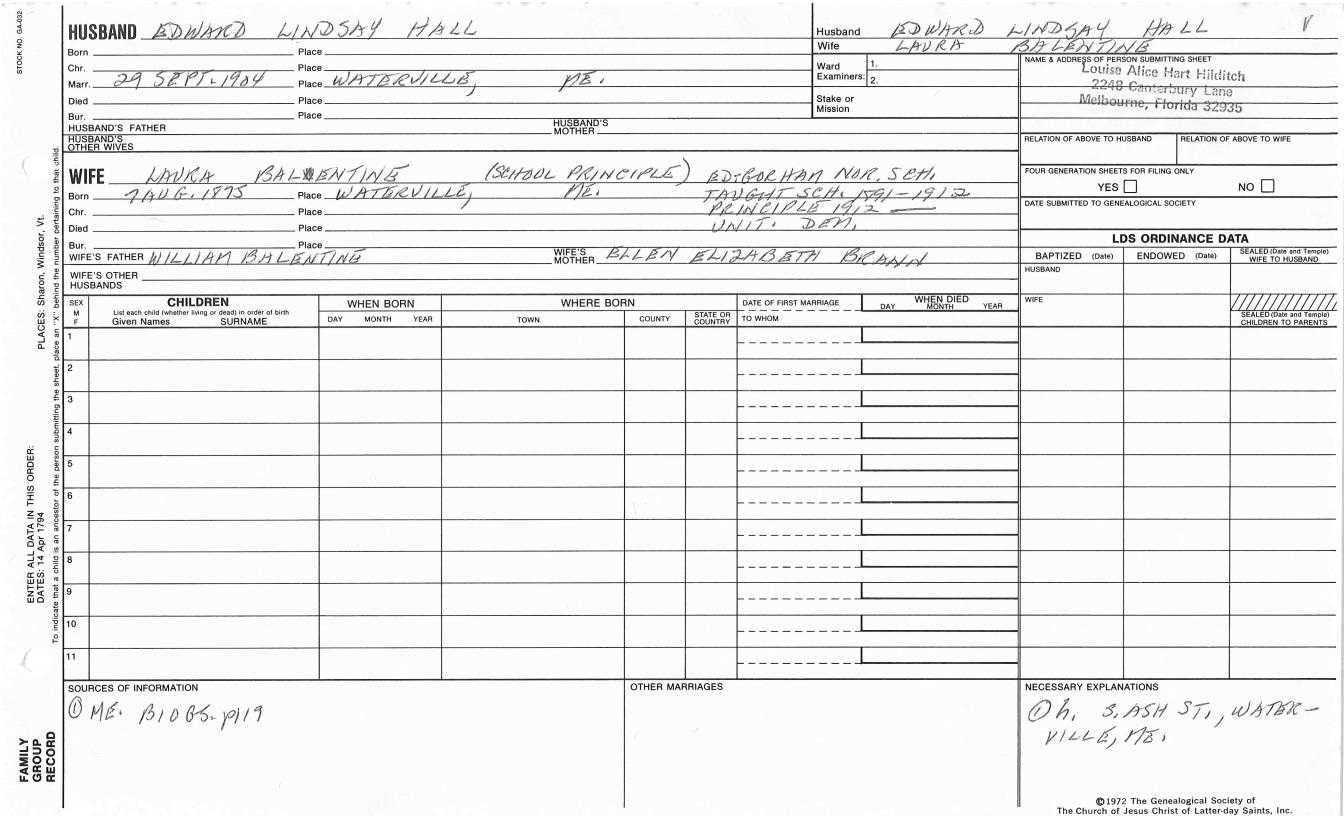 STOCK NO. GA-032
HUSBAND EDWARD LINDSAY HALL
Born Place
Chr. Place
Marr. 29 SEPT. 1904 Place WATERVILLE, ME.
Died Place
Bur. Place
HUSBAND'S FATHER HUSBAND'S MOTHER
HUSBAND'S OTHER WIVES
Husband EDWARD LINDSAY HALL V
Wife LAURA BALENTINE
Ward Examiners: 1.
2.
Stake or Mission
NAME & ADDRESS OF PERSON SUBMITTING SHEET
Louise Alice Hart Hilditch
2248 Canterbury Lane
Melbourne, Florida 32935
RELATION OF ABOVE TO HUSBAND RELATION OF ABOVE TO WIFE
FOUR GENERATION SHEETS FOR FILING ONLY
YES NO
DATE SUBMITTED TO GENEALOGICAL SOCIETY
WIFE LAURA BALENTINE (SCHOOL PRINCIPLE) ED: GORHAM NOR. SCH.
Born 7 AUG. 1875 Place WATERVILLE, ME. TAUGHT SCH. 1891-1912
Chr. Place PRINCIPLE 1912 —
Died Place UNIT. DEM.
Bur. Place
WIFE'S FATHER WILLIAM BALENTINE WIFE'S MOTHER ELLEN ELIZABETH BRANN
WIFE'S OTHER HUSBANDS
LDS ORDINANCE DATA
BAPTIZED (Date) ENDOWED (Date) SEALED (Date and Temple) WIFE TO HUSBAND
HUSBAND
WIFE
SEALED (Date and Temple) CHILDREN TO PARENTS
SEX M F
CHILDREN
List each child (whether living or dead) in order of birth
Given Names SURNAME
WHEN BORN
DAY MONTH YEAR
WHERE BORN
TOWN COUNTY STATE OR COUNTRY
DATE OF FIRST MARRIAGE
TO WHOM
WHEN DIED
DAY MONTH YEAR
1
2
3
4
5
6
7
8
9
10
11
SOURCES OF INFORMATION
① ME. BIOGS. p119
OTHER MARRIAGES
NECESSARY EXPLANATIONS
① h. 3. ASH ST., WATER-
VILLE, ME.
©1972 The Genealogical Society of
The Church of Jesus Christ of Latter-day Saints, Inc.
FAMILY GROUP RECORD
ENTER ALL DATA IN THIS ORDER:
DATES: 14 Apr 1794 PLACES: Sharon, Windsor, Vt.
To indicate that a child is an ancestor of the person submitting the sheet, place an "X" behind the number pertaining to that child.